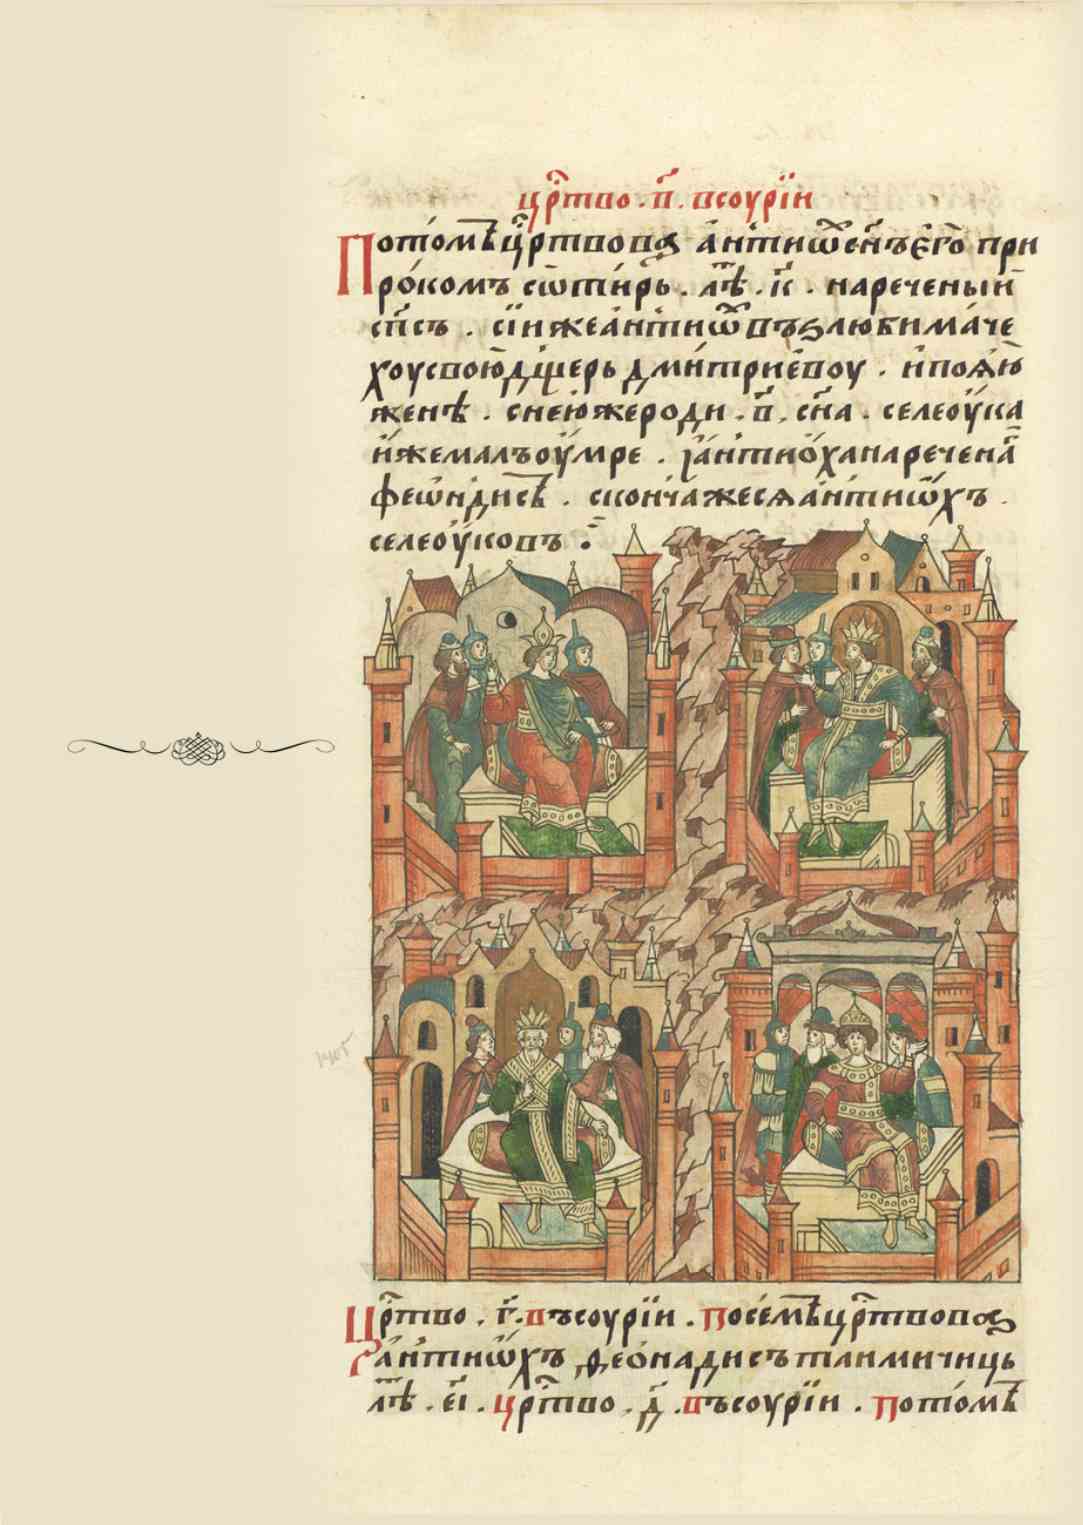 цр҃тво . в҃ . всоурїи
Потомъ цр҃твова антиѿ сн҃ъ єго при
рокомъ сѡтиръ . лѣ҃ . к҃ . нареченыи
сп҃съ . сїи же антиѿ възлюби маче
хоу свою дщерь дмитриевоу . и поѧ ю
женѣ . с нею же роди . в҃ . сн҃а . селеоука
иже малъ оумре . і антиоха наречена
феѡндисъ . скончажесѧ антиѡхъ .
селеоуковъ :
Цр҃тво . г҃ . въсоурїи . по семъ цр҃твова
антиѡхъ деонадисъ талмичиць
лѣ҃ . еі҃ . цр҃тво . д҃ . въсоурїи . потомъ